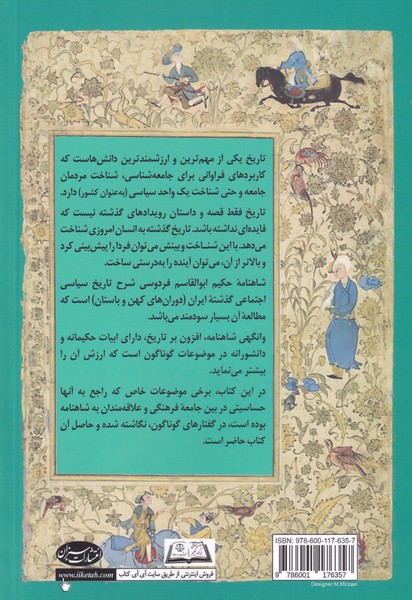 تاریخ یکی از مهم‌ترین و ارزشمندترین دانش‌هاست که
کاربردهای فراوانی برای جامعه‌شناسی، شناخت مردمان
جامعه و حتی شناخت یک واحد سیاسی (به‌عنوان کشور) دارد.
تاریخ فقط قصه و داستان رویدادهای گذشته نیست که
فایده‌ای نداشته باشد. تاریخ گذشته به انسان امروزی شناخت
می‌دهد. با این شناخت و بینش می‌توان فردا را پیش‌بینی کرد
و بالاتر از آن، می‌توان آینده را به‌درستی ساخت.
شاهنامهٔ حکیم ابوالقاسم فردوسی شرح تاریخ سیاسی
اجتماعی گذشتهٔ ایران (دوران‌های کهن و باستان) است که
مطالعه آن بسیار سودمند می‌باشد.
وانگهی شاهنامه، افزون بر تاریخ، دارای ابیات حکیمانه و
دانشورانه در موضوعات گوناگون است که ارزش آن را
بیشتر می‌نماید.
در این کتاب، برخی موضوعات خاص که راجع به آنها
حساسیتی در بین جامعهٔ فرهنگی و علاقه‌مندان به شاهنامه
بوده است، در گفتارهای گوناگون، نگاشته شده و حاصل آن
کتاب حاضر است.
انتشارات میزان
www.iiketab.com
فروش اینترنتی از طریق سایت آی آی کتاب
ISBN: 978-600-117-635-7
9 786001 176357
Designer:M.Mirzaei